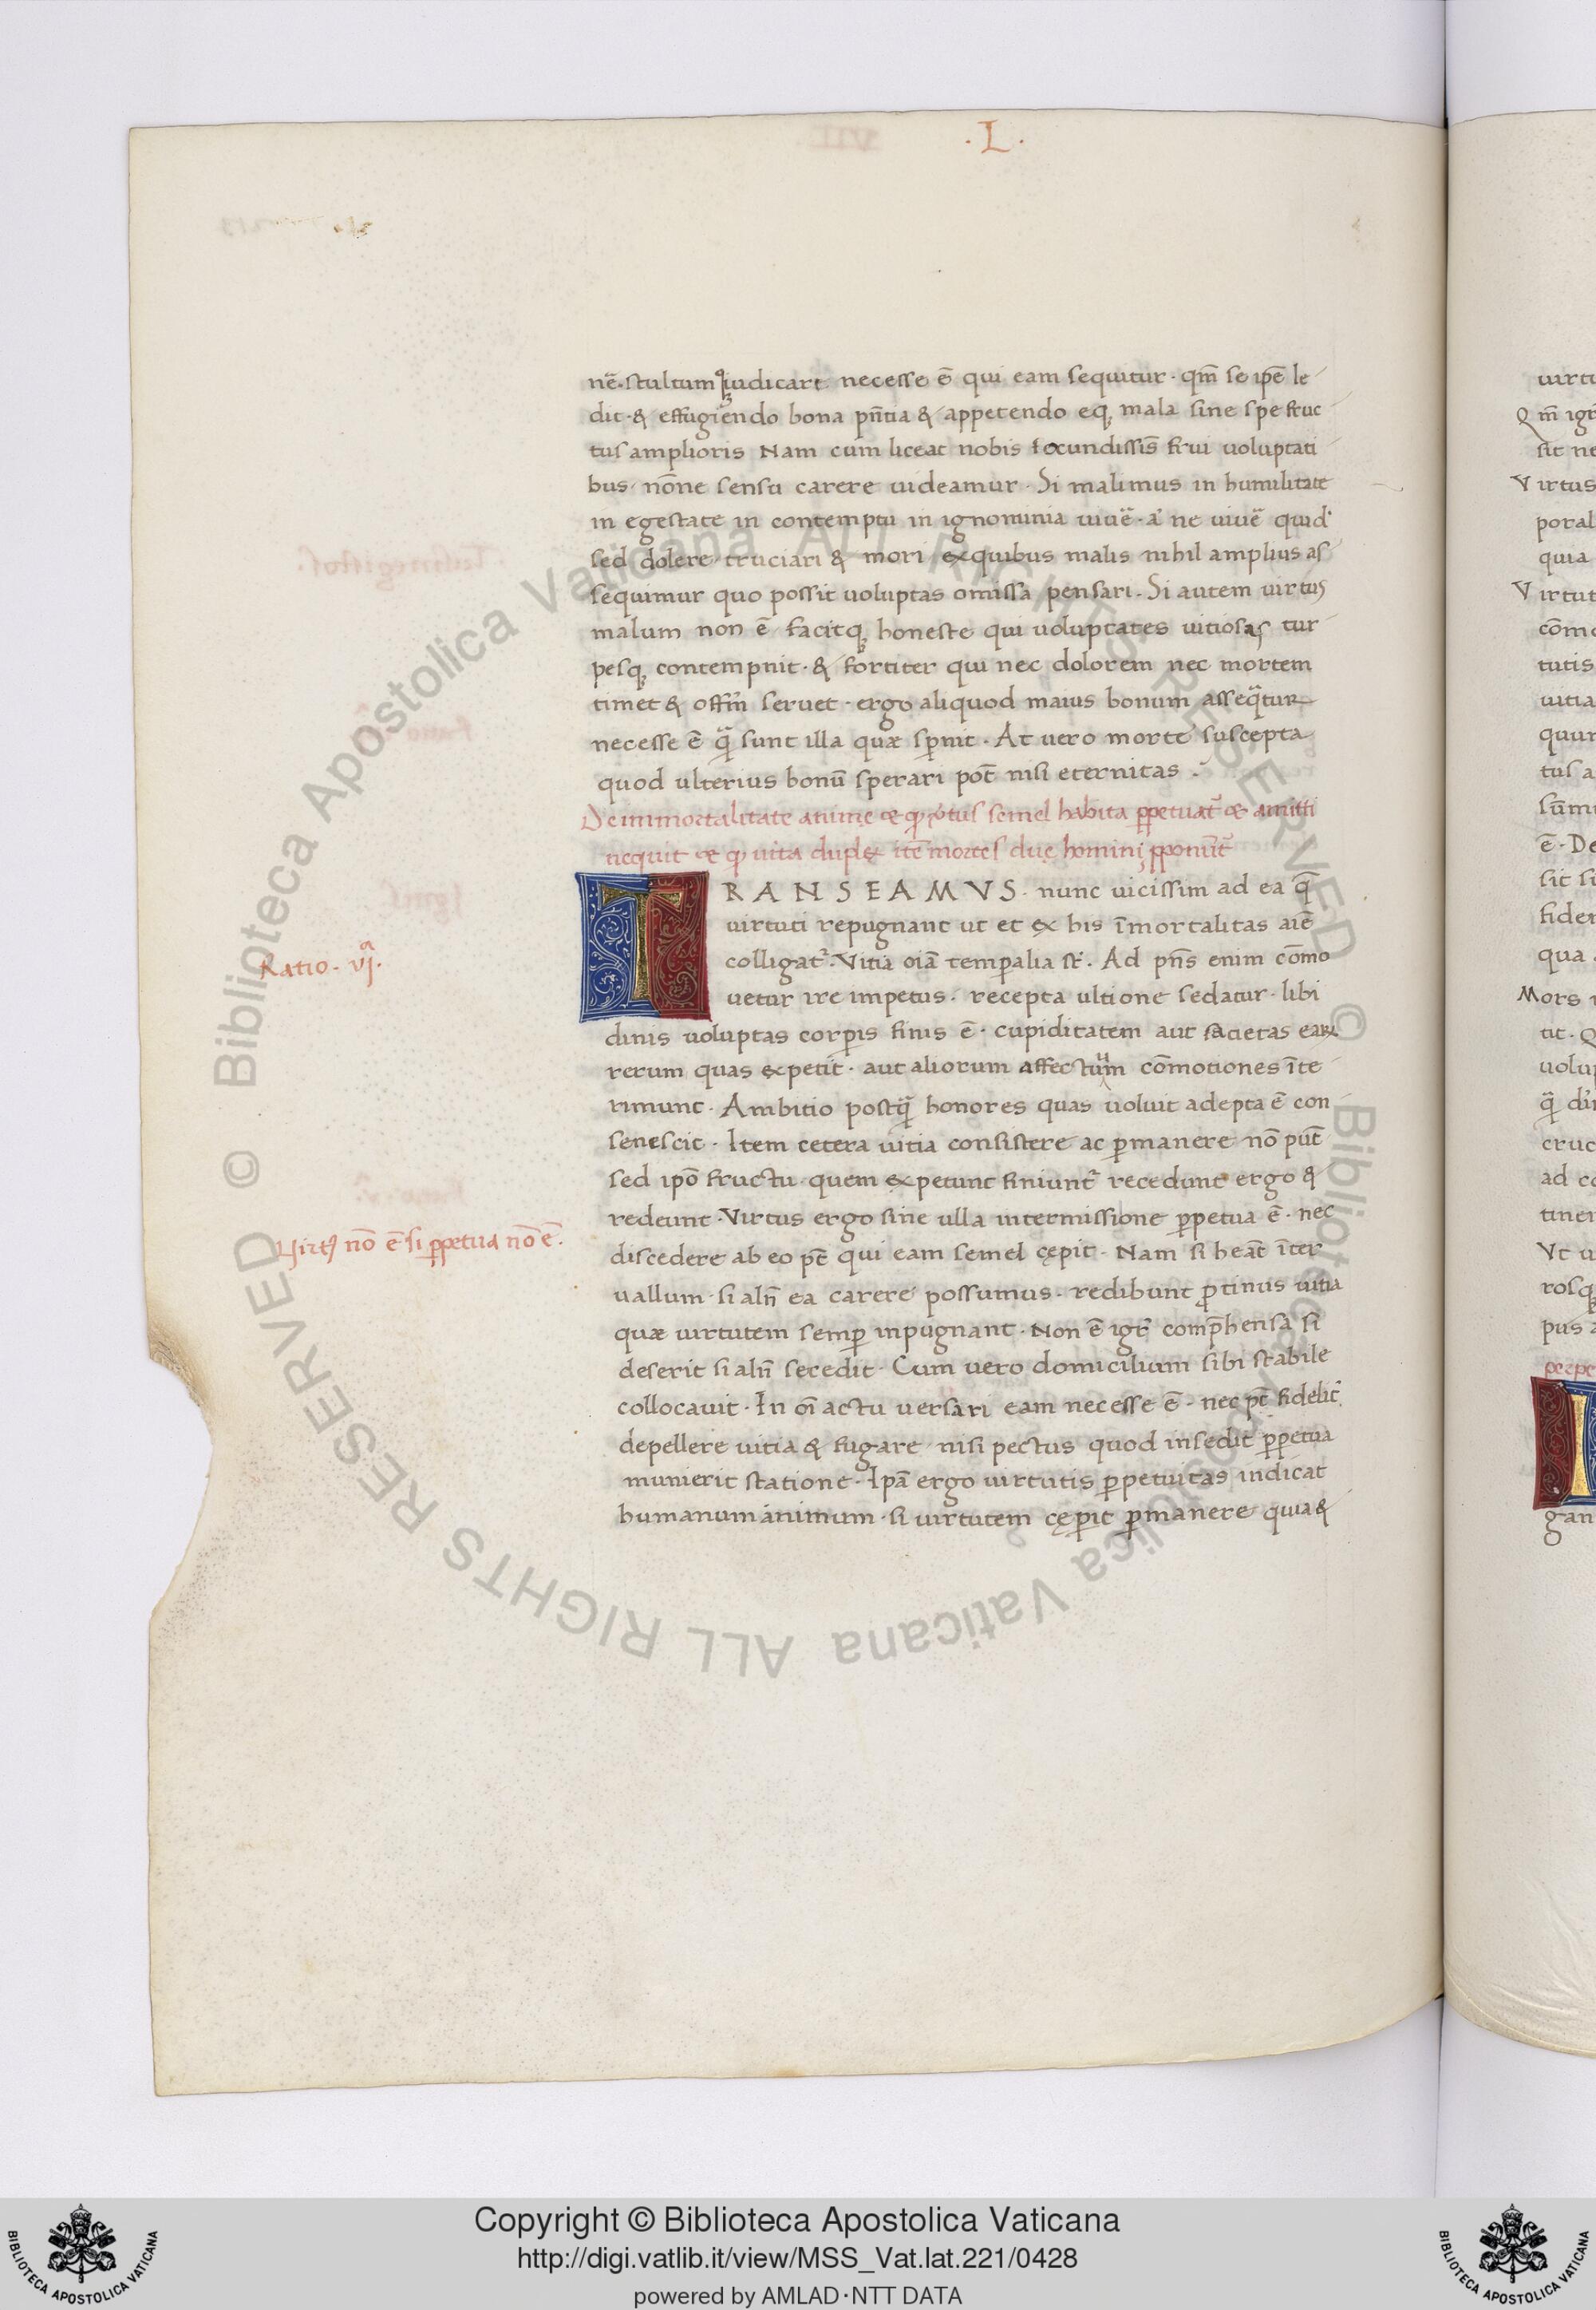 · L ·
nē · stultumq̨ iudicare necesse ē qui eam sequitur · qm̄ se ip̄e le
dit · & effugiendo bona pn̄tia & appetendo eq̨ mala sine spe fruc
tus amplioris Nam cum liceat nobis iocundissīs frui uoluptati
bus · nōne sensu carere uideamur · Si malimus in humilitate
in egestate in contemptu in ignominia uiuē̄ · a' ne uiuē̄ quid'
sed dolere cruciari & mori ex quibus malis nihil amplius as
sequimur quo possit uoluptas omissa pensari · Si autem uirtus
malum non ē facitq̨ honeste qui uoluptates uitiosas tur
pesq̨ contempnit · & fortiter qui nec dolorem nec mortem
timet & offm̄ seruet · ergo aliquod maius bonum asseq̄tur
necesse ē q̄ sunt illa quæ sp̱nit · At uero morte suscepta
quod ulterius bonū sperari pōt nisi eternitas ·
De immortalitate anime et ꝙ v̓tus semel habita ꝑpetuat̃ et amitti
nequit et ꝙ uita duplex itē mortes due homini ꝓponūt̃
TRANSEAMVS · nunc uicissim ad ea q̄
uirtuti repugnant ut et ex his īmortalitas aīe
colligat̃ · Vitia oīa temꝑalia st̃ · Ad pn̄s enim cōmo
uetur ire impetus · recepta ultione sedatur · libi
dinis uoluptas corꝑis finis ē · cupiditatem aut sacietas earꝝ
rerum quas expetit · aut aliorum affectuum cōmotiones īte
rimunt · Ambitio postq̄ honores quas uoluit adepta ē con
senescit · Item cetera uitia consistere ac ꝑmanere nō pūt
sed ip̄o fructu quem expetunt finiunt̃ recedunt ergo &
redeunt · Virtus ergo sine ulla intermissione ꝑpetua ē · nec
discedere ab eo pt̄ qui eam semel cępit · Nam si hēat īter
uallum · si aln̄ ea carere possumus · redibunt ꝓtinus uitia
quæ uirtutem semꝑ inpugnant · Non ē igt̃ comp̄hensa si
deserit si aln̄ secedit · Cum uero domicilium sibi stabile
collocauit · In oī actu uersari eam necesse ē · nec pt̄ fidelit̃
depellere uitia & fugare nisi pectus quod insedit ꝑpetua
munierit statione · Ip̄a ergo uirtutis ꝑpetuitas indicat
humanum animum · si uirtutem cępit ꝑmanere quia &
Ratio · vj.ᵃ
Virtꝰ nō ē si ꝑpetua nō ē ·
uirtu
Qm̄ igr̃
sit ne
Virtus
poral
quia
Virtut
cōmo
tutis
uitia
quur
tus a
sūm
ē · De
sit si
fider
qua
Mors
tit · Q
uolup
cruc
ad co
tiner
Vt u
rosq̨
pus a
perpe
gan
Copyright © Biblioteca Apostolica Vaticana
http://digi.vatlib.it/view/MSS_Vat.lat.221/0428
powered by AMLAD·NTT DATA
BIBLIOTECA APOSTOLICA VATICANA
BIBLIOTECA APOSTOLICA VATICANA
© Biblioteca Apostolica Vaticana ALL RIGHTS RESERVED © Biblioteca Apostolica Vaticana ALL RIGHTS RESERVED